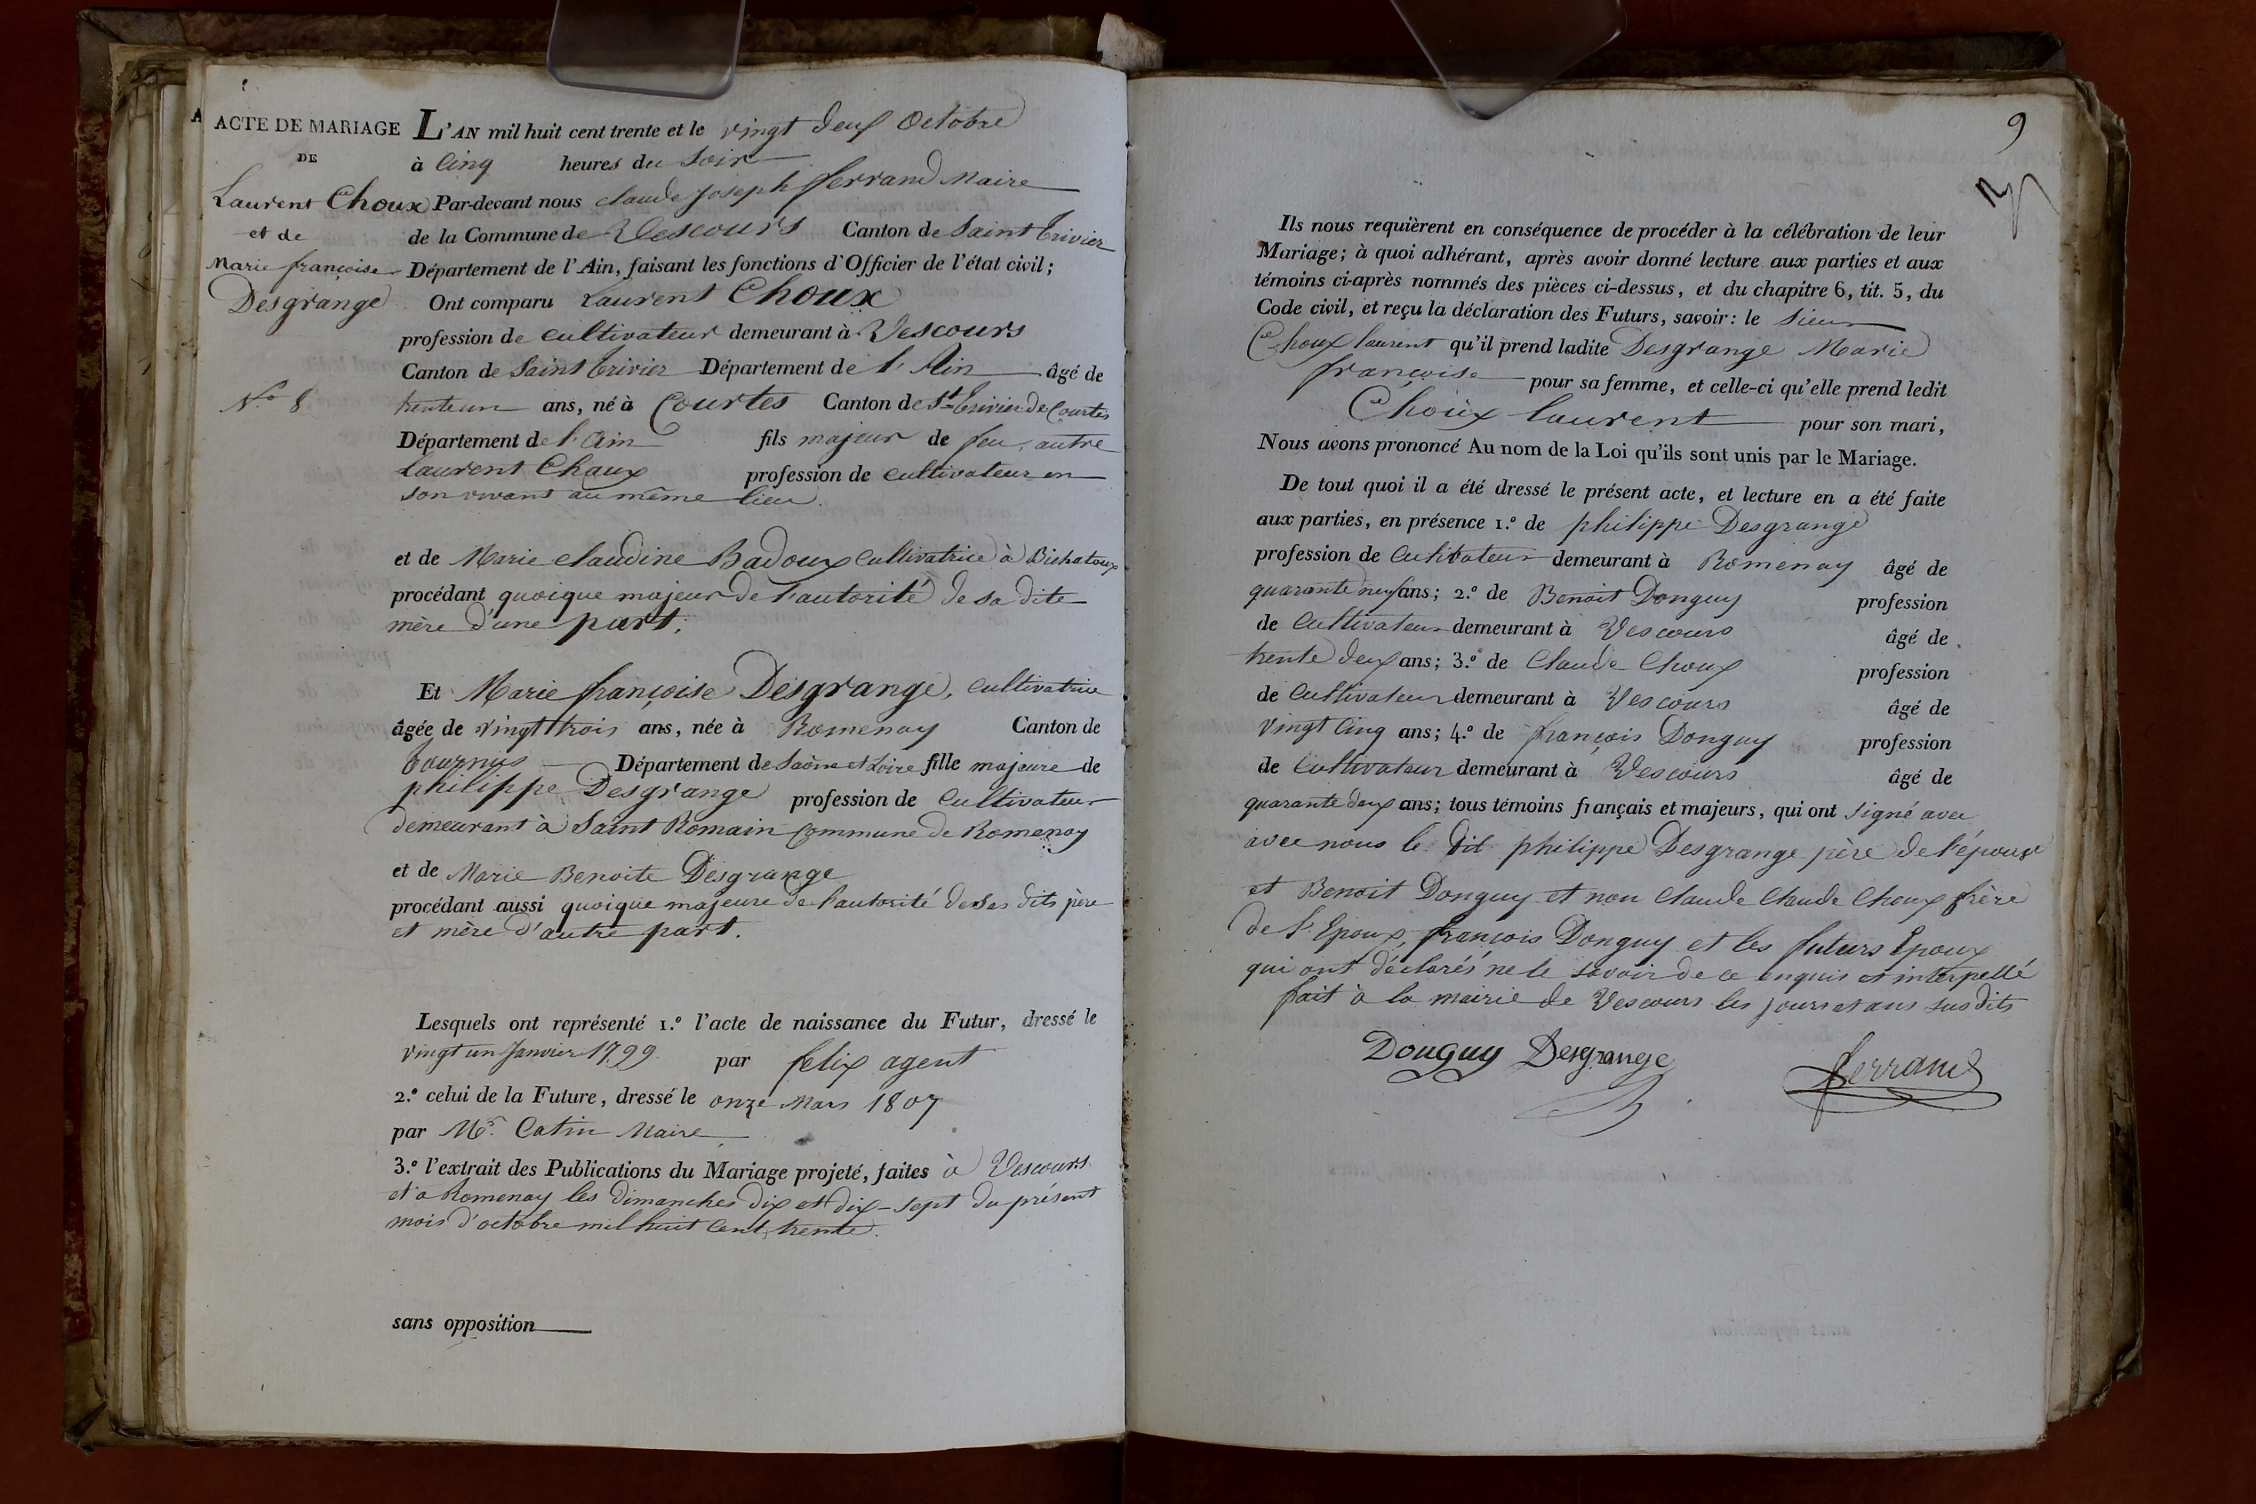 ACTE DE MARIAGE
DE
Laurent Choux
et de
Marie françoise
Desgrange
N.o 8
L'AN mil huit cent trente et le vingt deux Octobre
à Cinq heures du Soir
Par-devant nous claude Joseph ferrand Maire
de la Commune de Vescours Canton de Saint Trivier
Département de l'Ain, faisant les fonctions d'Officier de l'état civil;
Ont comparu Laurent Choux
profession de cultivateur demeurant à Vescours
Canton de Saint Trivier Département de l'Ain âgé de
trente un ans, né à Courtes Canton de St Trivier De Courtes
Département de l'Ain fils majeur de feu autre
Laurent Choux profession de cultivateur en
son vivant au même lieu.
et de Marie claudine Badoux cultivatrice à
procédant quoique majeur de l'autorité de sa dite
mère d'une part.
Et Marie françoise Desgrange, cultivatrice
âgée de vingt trois ans, née à Romenay Canton de
Tournus Département de Saône et Loire fille majeure de
philippe Desgrange profession de Cultivateur
demeurant à Saint Romain commune de Romenay
et de Marie Benoite Desgrange
procédant aussi quoique majeure de l'autorité de ses dits père
et mère d'autre part.
Lesquels ont représenté 1.o l'acte de naissance du Futur, dressé le
vingt un Janvier 1799 par felix agent
2.o celui de la Future, dressé le onze Mars 1807
par Mr. Catin Maire
3.o l'extrait des Publications du Mariage projeté, faites à Vescours
et à Romenay les dimanches dix et dix-sept du présent
mois d'octobre mil huit Cent trente.
sans opposition
9
Ils nous requièrent en conséquence de procéder à la célébration de leur
Mariage; à quoi adhérant, après avoir donné lecture aux parties et aux
témoins ci-après nommés des pièces ci-dessus, et du chapitre 6, tit. 5, du
Code civil, et reçu la déclaration des Futurs, savoir: le Sieur
Choux laurent qu'il prend ladite Desgrange Marie
françoise pour sa femme, et celle-ci qu'elle prend ledit
Choux laurent pour son mari,
Nous avons prononcé Au nom de la Loi qu'ils sont unis par le Mariage.
De tout quoi il a été dressé le présent acte, et lecture en a été faite
aux parties, en présence 1.o de philippe Desgrange
profession de Cultivateur demeurant à Romenay âgé de
quarante neuf ans; 2.o de Benoit Donguy profession
de Cultivateur demeurant à Vescours âgé de
trente deux ans; 3.o de Claude Choux profession
de Cultivateur demeurant à Vescours âgé de
vingt Cinq ans; 4.o de françois Donguy profession
de Cultivateur demeurant à Vescours âgé de
quarante deux ans; tous témoins français et majeurs, qui ont signé avec
avec nous le dit philippe Desgrange père de l'épouse
et Benoit Donguy et non Claude Claude Choux frère
de l'Epoux, françois Donguy et les futurs Epoux
qui ont déclarés ne le savoir de ce enquis et interpellé
fait à la mairie de Vescours les jours et ans susdits
Donguy Desgrange ferrand